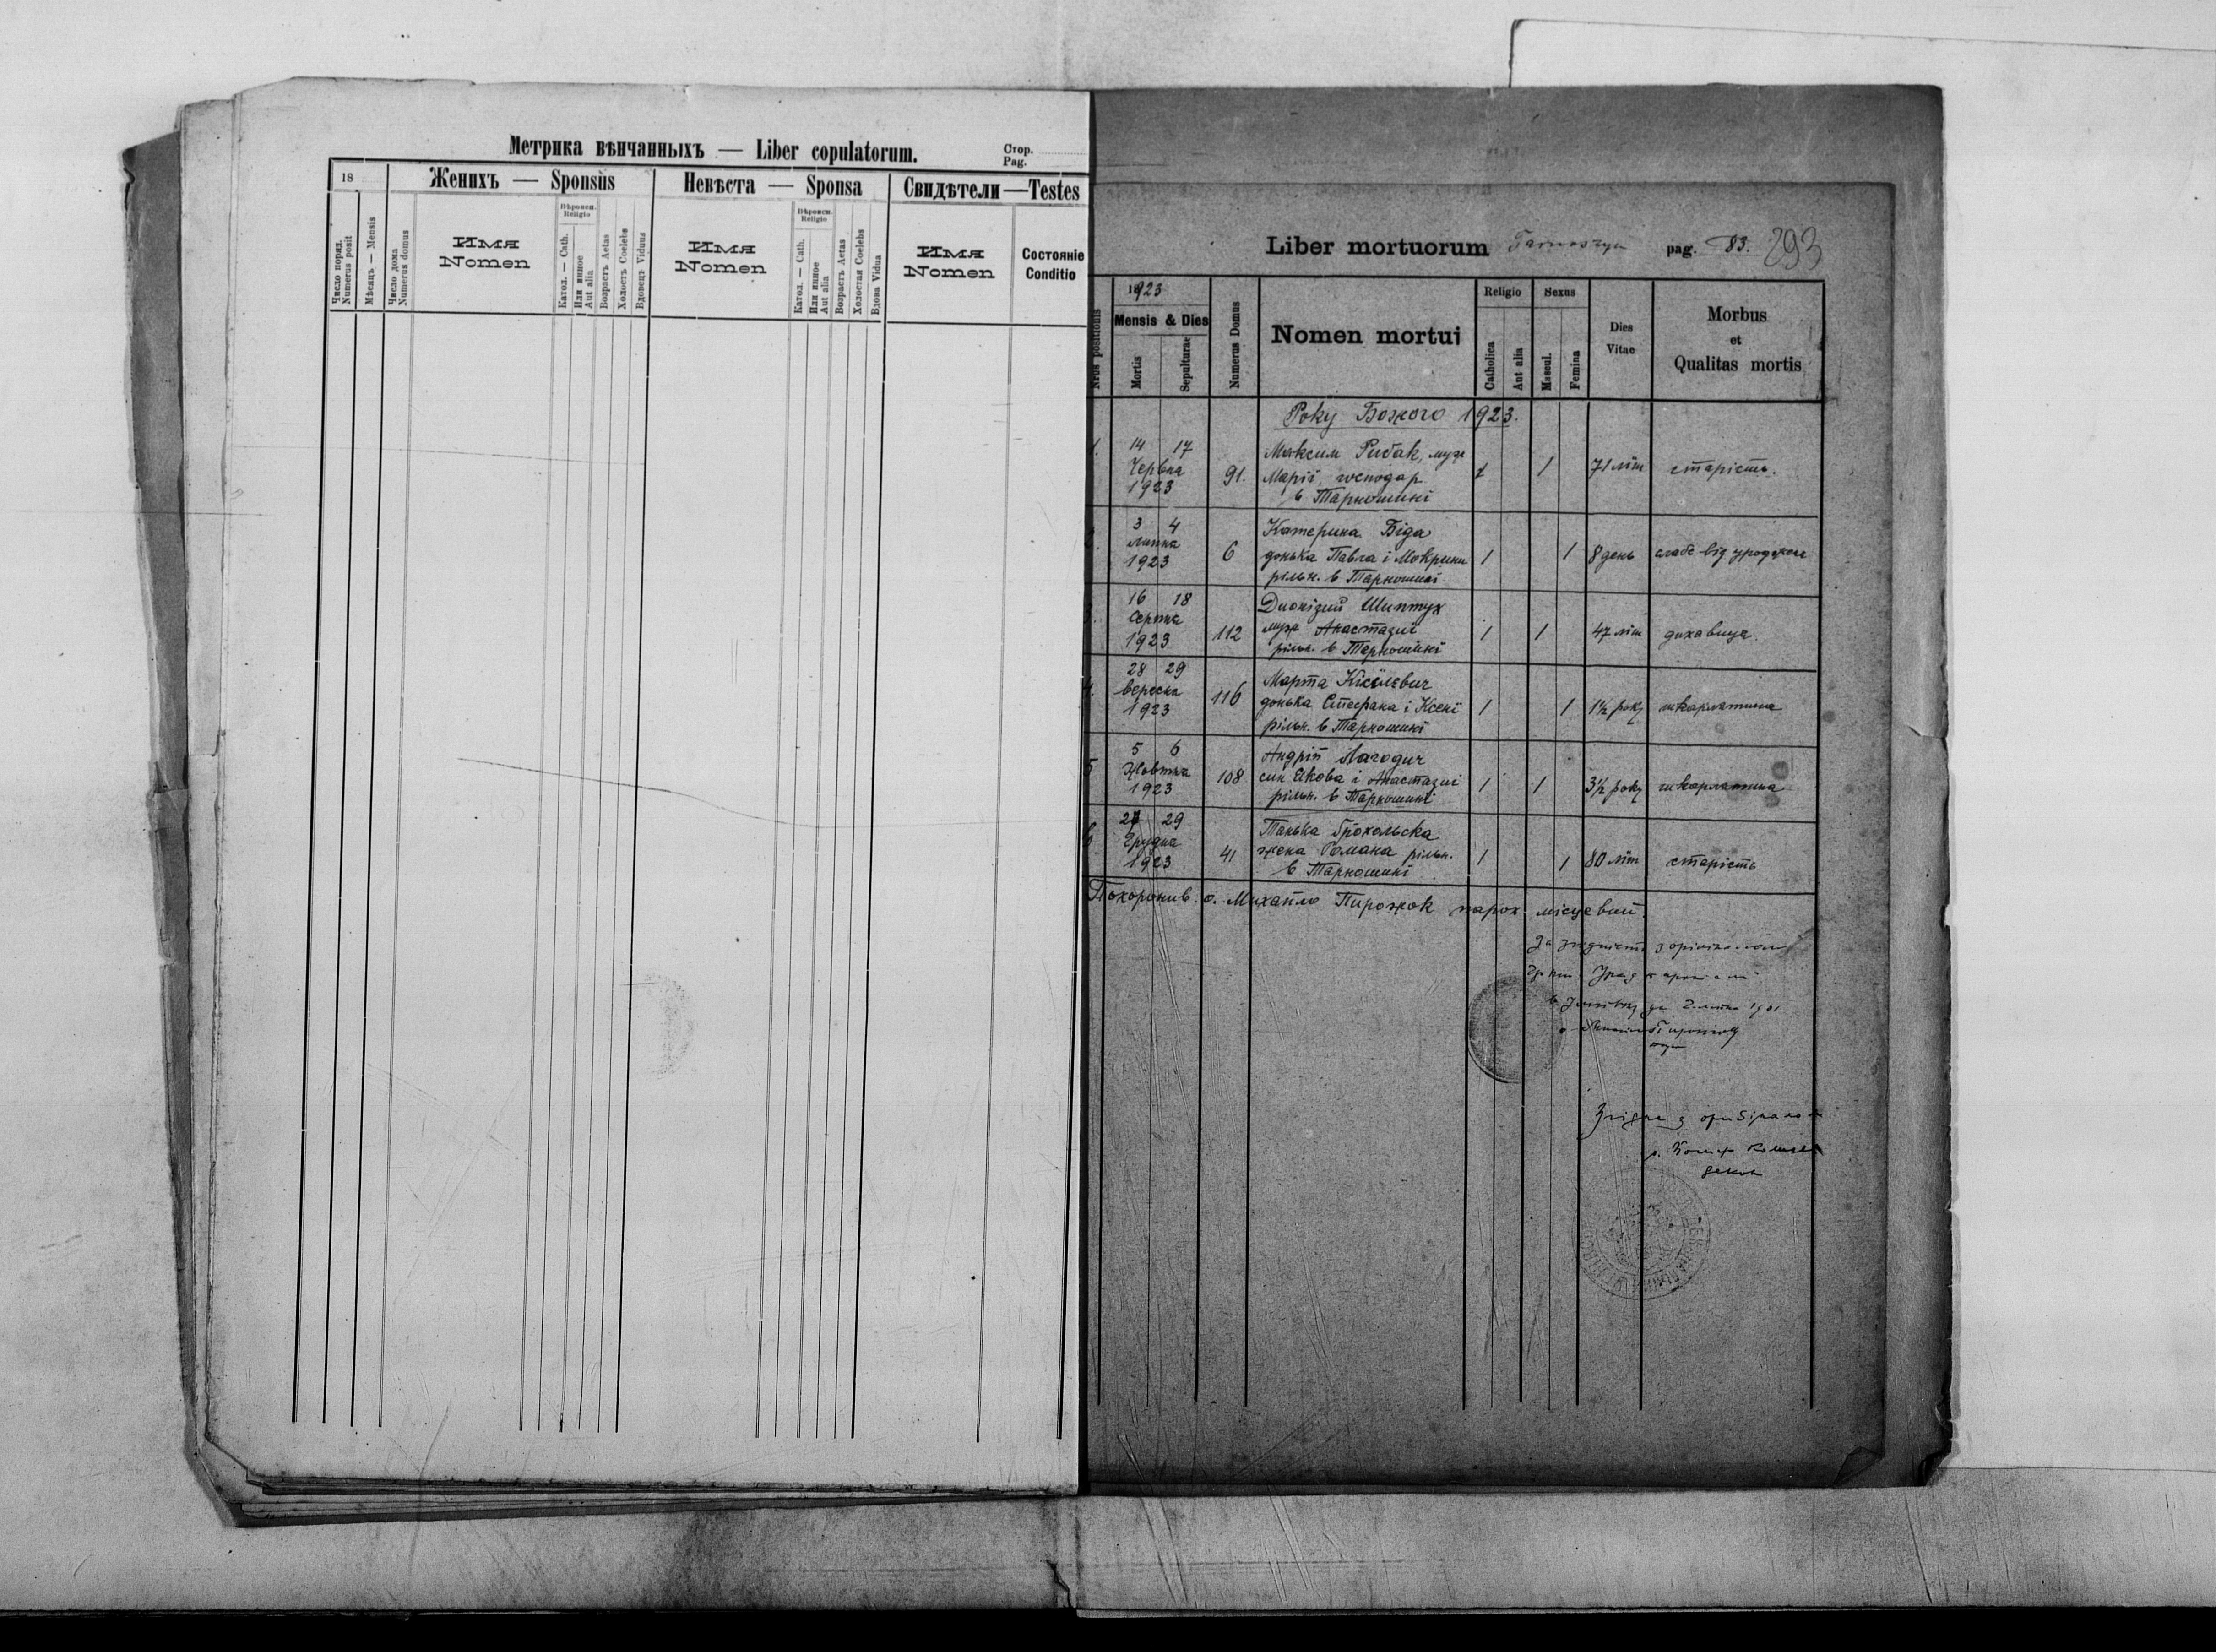 Метрика вѣнчанныхъ — Liber copulatorum.
Стор.
Pag.
18
Женихъ — Sponsus
Невѣста — Sponsa
Свидѣтели — Testes
Число поряд.
Numerus posit
Мѣсяцъ — Mensis
Число дома
Numerus domus
Имя
Nomen
Вѣроисп.
Religio
Катол. — Cath.
Или инное
Aut alia
Возрастъ Aetas
Холостъ Coelebs
Вдовецъ Viduus
Имя
Nomen
Вѣроисп.
Religio
Катол. — Cath.
Или инное
Aut alia
Возрастъ Aetas
Холостая Coelebs
Вдова Vidua
Имя
Nomen
Состояніе
Conditio
Liber mortuorum Tarnoszyn pag. 83. 293
Nrus positionis
1923
Mensis & Dies
Mortis
Sepulturae
Numerus Domus
Nomen mortui
Religio
Catholica
Aut alia
Sexus
Mascul.
Femina
Dies
Vitae
Morbus
et
Qualitas mortis
Року Божого 1923.
1. 14 17 Максим Рибак, муж
Червня 91. Марії, господар 1 1 71 літ старість.
1923 в Тарношині
3 4 Катерина Біда
липня 6 донька Павла і Мокрини 1 1 8 день слабе від уродженя
1923 рільн. в Тарношині
16 18 Дионізий Шиптух
Серпня 112 муж Анастазиї 1 1 47 літ духавиця.
1923 рільн. в Тарношині
28 29 Марта Кісілевич
вересня 116 донька Стефана і Ксені 1 1 1½ року шкарлятина
1923 рільн. в Тарношині
5 5 6 Андрій Лагодич
Жовтня 108 син Якова і Анастазиї 1 1 3½ року шкарлятина
1923 рільн. в Тарношині
6 27 29 Танька Грохольска
Грудня 41 жена Романа рільн. 1 1 80 літ старість
1923 в Тарношині
Похоронив о. Михайло Пирожок парох місцевий.
За згідність з оріґіналом